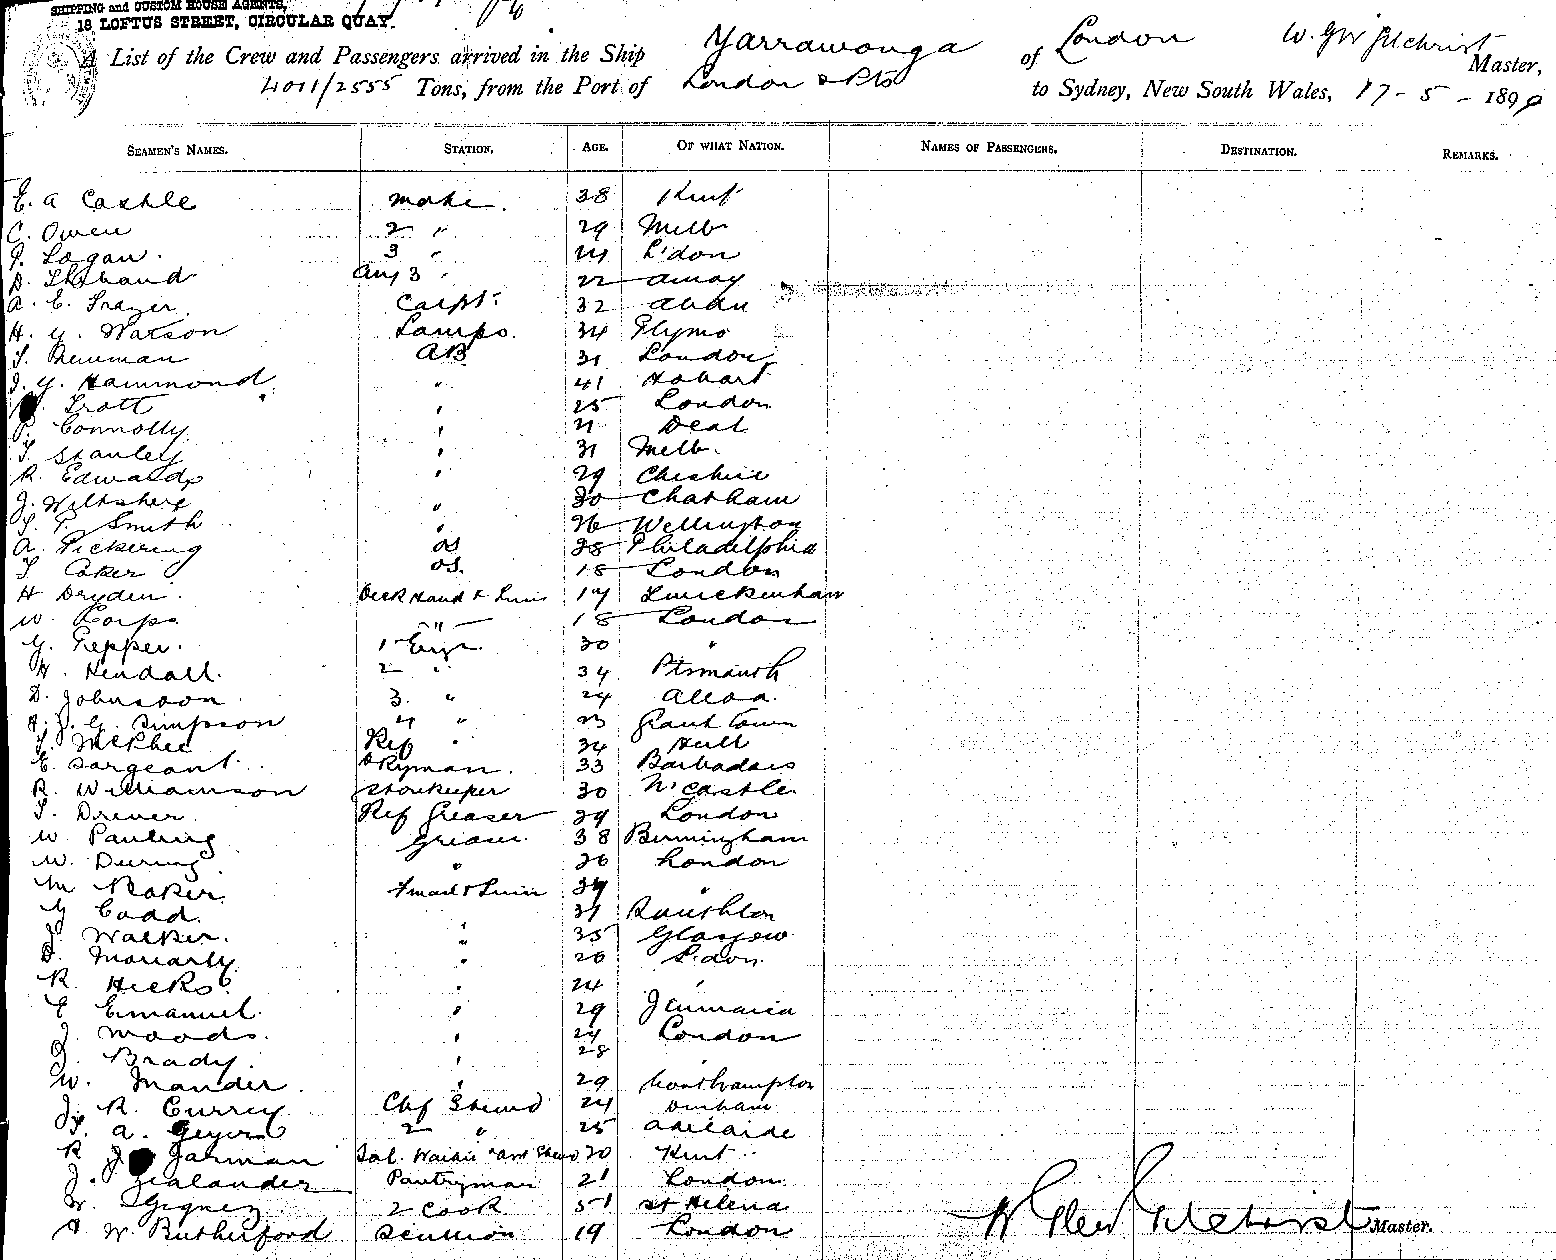 SHIPPING and CUSTOM HOUSE AGENTS,
18 LOFTUS STREET, CIRCULAR QUAY.
A List of the Crew and Passengers arrived in the Ship Yarrawonga of London W. G Gilchrist Master,
4011/2555 Tons, from the Port of London & Pts to Sydney, New South Wales, 17-5-1899
SEAMEN'S NAMES. STATION. AGE. OF WHAT NATION. NAMES OF PASSENGERS. DESTINATION. REMARKS.
E. A Castle mate. 38 Kent
C. Owen 2 " 29 Melb
J. Logan. 3 " 24 L'don
D. Aug 3 " 22 Amoy
A. E. Frazer. Carptr. 32
H. G. Watson Lamps. 34 Plymo
T. Newman AB 31 London
J. G. Hammond " 41 Hobart
Trott " 25 London
P. Connolly " 21 Deal
T. Stanley " 31 Melb.
R. Edwards " 29 Cheshire
J. Wiltshere " 30 Chatham
T. P. Smith " 26 Wellington
A. Pickering OS 28 Philadelphia
T Coker OS. 18 London
H Dryden. Deck Hand & Trim 17 Twickenham
W. Corps " 18 London
G. Pepper. 1 Engr 30 "
H. Kendall. 2 " 34 Ptsmouth
D. Johnston 3. " 24 Alloa.
A. J. G. Simpson 4 " 23 Grant town
J. McPhee Ref " 34 Hull
E. Sargeant. Dkyman. 33 Barbadoes
R. Williamson Storekeeper 30 N'castle
T. Drewer Ref Greaser 29 London
W. Pauling Greaser 38 Birmingham
W. Deering " 26 London
M Baker. Fman & Trim 39 "
G Coad. " 31
J. Walker. " 35 Glasgow
D. Moriarty " 26 L'don
R. Hicks. " 24 "
E Emanuel. " 29 Jamaica
J. Woods. " 24 London
J. Brady. " 28 "
W. Mander. " 29 Southampton
J. R. Currey Chf Steward 24 Durham
A. Geyer 2 " 25 Adelaide
R J Jarman Sal. Waiter 20 Kent
J. Zealander Pantryman 21 London
W. 2 Cook 51 St Helena
A W. Rutherford Scullion 19 London
W Glen Gilchrist Master.